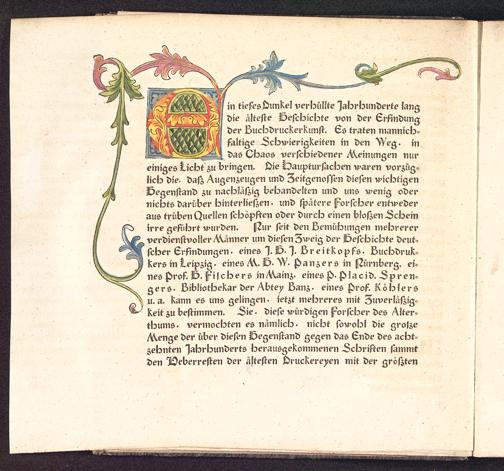 Ein tiefes Dunkel verhüllte Jahrhunderte lang
die älteste Geschichte von der Erfindung
der Buchdruckerkunst. Es traten mannich-
faltige Schwierigkeiten in den Weg, in
das Chaos verschiedener Meinungen nur
einiges Licht zu bringen. Die Hauptursachen waren vorzüg-
lich die, daß Augenzeugen und Zeitgenossen diesen wichtigen
Gegenstand zu nachläßig behandelten und uns wenig oder
nichts darüber hinterließen, und spätere Forscher entweder
aus trüben Quellen schöpften oder durch einen bloßen Schein
irre geführt wurden. Nur seit den Bemühungen mehrerer
verdienstvoller Männer um diesen Zweig der Geschichte deut-
scher Erfindungen, eines J. G. J. Breitkopfs, Buchdruk-
kers in Leipzig, eines M. G. W. Panzers in Nürnberg, ei-
nes Prof. G. Fischers in Mainz, eines P. Placid. Spren-
gers, Bibliothekar der Abtey Banz, eines Prof. Köhlers
u. a. kann es uns gelingen, jetzt mehreres mit Zuverläßig-
keit zu bestimmen. Sie, diese würdigen Forscher des Alter-
thums, vermochten es nämlich, nicht sowohl die große
Menge der über diesen Gegenstand gegen das Ende des acht-
zehnten Jahrhunderts herausgekommenen Schriften sammt
den Ueberresten der ältesten Druckereyen mit der größten